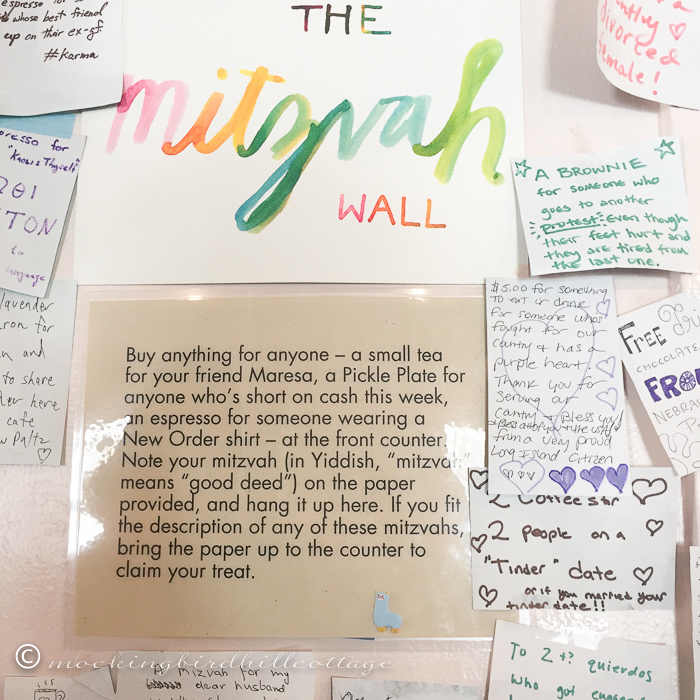 espresso for
whose best friend
up on their ex-gf.
#karma
THE
mitzvah
WALL
divorced
female!
espresso for
"Knows Thyself"
to
language
A BROWNIE
for someone who
goes to another
PROTEST Even though
their feet hurt and
they are tired from
the last one.
lavender
for
and
to share
here
cafe
Paltz
Buy anything for anyone – a small tea
for your friend Maresa, a Pickle Plate for
anyone who's short on cash this week,
an espresso for someone wearing a
New Order shirt – at the front counter.
Note your mitzvah (in Yiddish, "mitzvah"
means "good deed") on the paper
provided, and hang it up here. If you fit
the description of any of these mitzvahs,
bring the paper up to the counter to
claim your treat.
$5.00 for something
TO eat or drink
for someone who
fought for our
country & has a
purple heart.
Thank you for
serving our
country Bless you
from a very proud
Long Island Citizen
FREE
CHOCOLATE
FROM
NEBRASKA
2 Coffees for
2 people on a
"Tinder" date
or if you married your
tinder date!!
To 2 quierdos
who got
Mizvah for my
dear husband
© mockingbirdhillcottage